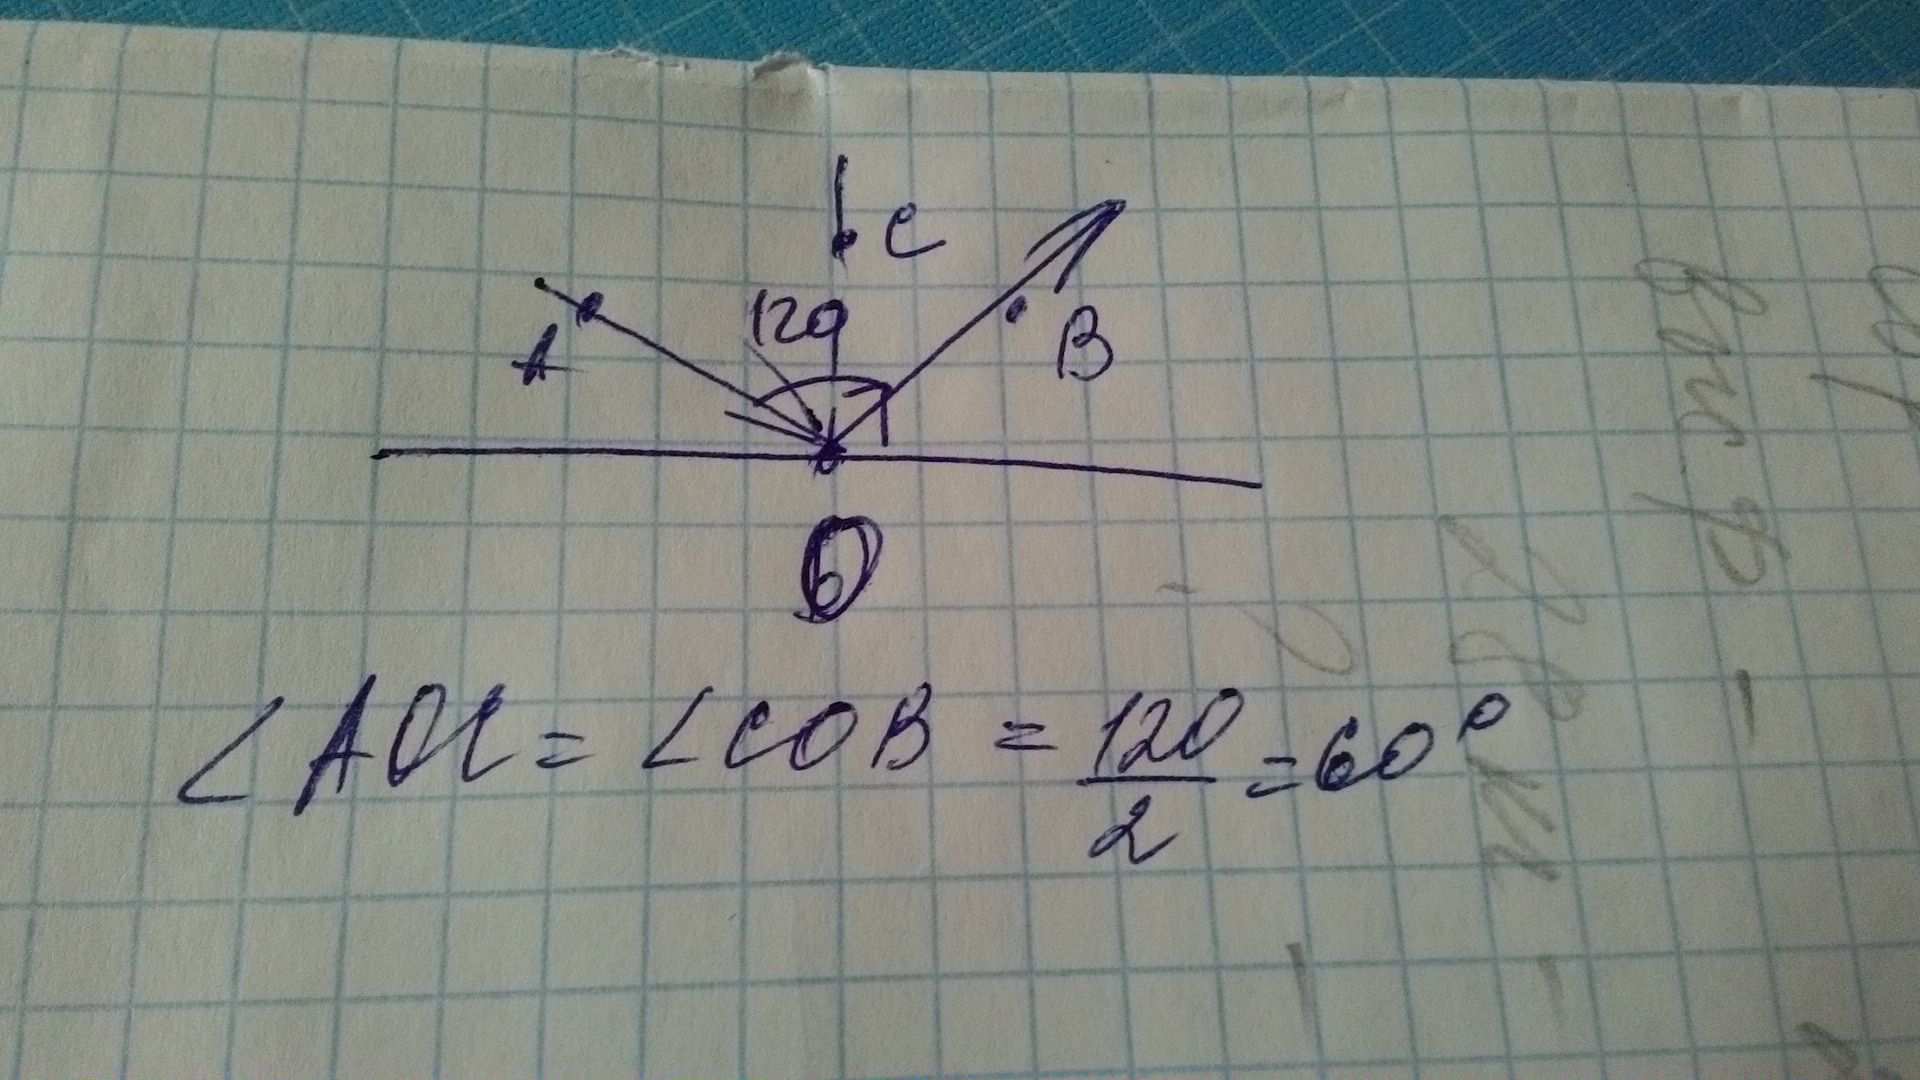 C
120
A
B
O
∠AOC = ∠COB = 120/2 = 60°